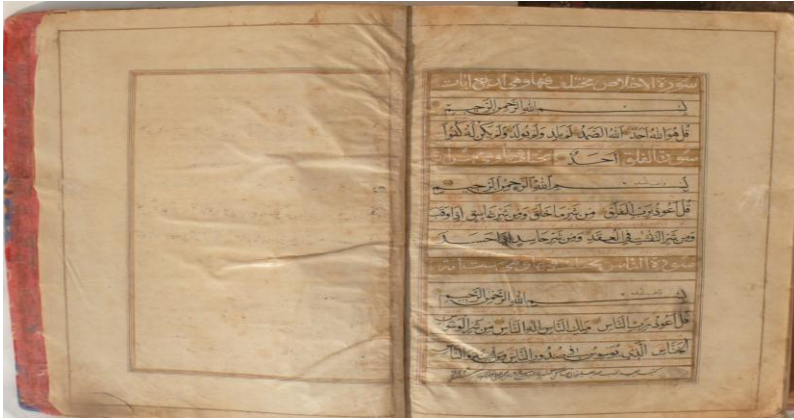 سورة الاخلاص مختلف فيها وهي اربع ايات
بسم الله الرحمن الرحيم
قل هو الله احد الله الصمد لم يلد ولم يولد ولم يكن له كفوا
سورة الفلق احد
بسم الله الرحمن الرحيم
قل اعوذ برب الفلق من شر ما خلق ومن شر غاسق اذا وقب
ومن شر النفثت في العقد ومن شر حاسد اذا حسد
سورة الناس
بسم الله الرحمن الرحيم
قل اعوذ برب الناس ملك الناس اله الناس من شر الوسواس
الخناس الذي يوسوس في صدور الناس من الجنة والناس